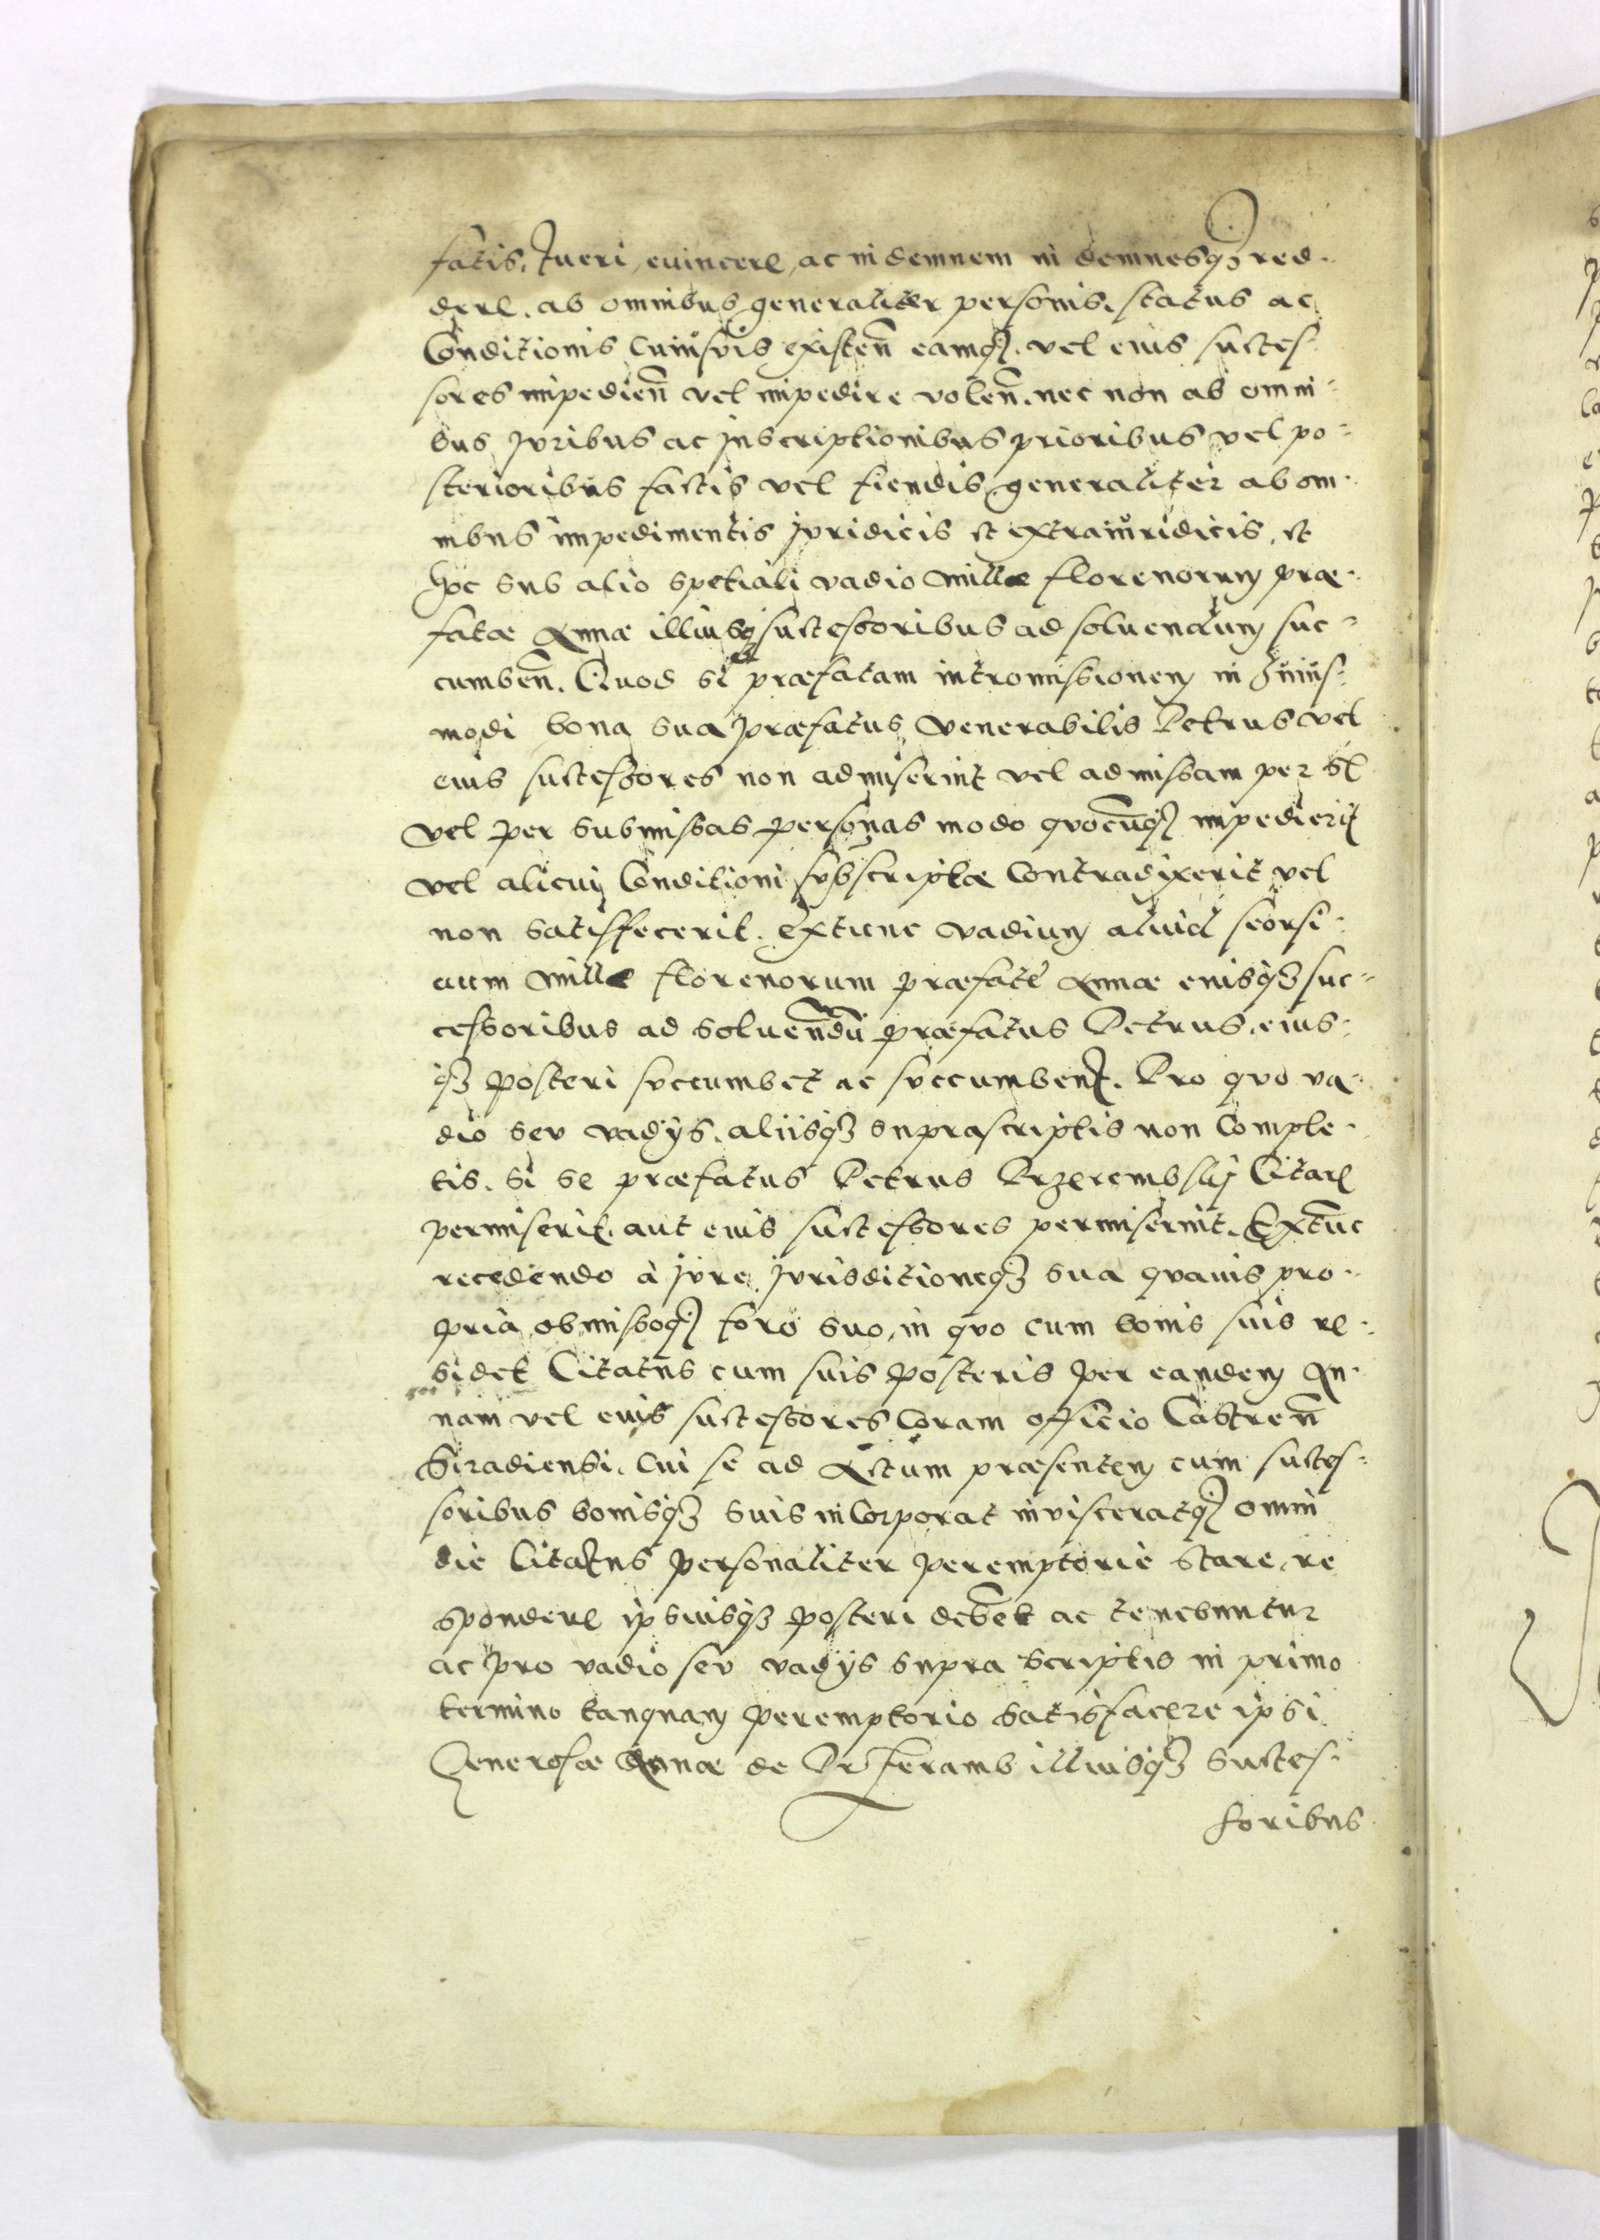 fatis, tueri, euincere, ac indemnem indemnesq3 red-
dere. ab omnibus generaliter personis, status ac
Conditionis cuiusuis existen̄ eamq3. vel eius succes-
sores impedien̄ vel impedire volen̄. nec non ab omni-
bus Juribus ac Inscriptionibus prioribus vel po-
sterioribus factis vel fiendis generaliter ab om-
nibus impedimentis juridicis et extraiuridicis, et
hoc sub alio spetiali vadio mille florenorum præ-
fatæ Annæ illiusq3 successoribus ad soluendum suc-
cumben̄. Quod si præfatam intromissionem in huius-
modi bona sua præfatus venerabilis Petrus vel
eius successores non admiserint vel admissam per se
vel per submissas personas modo quocunq3 impedierit
vel alicui Conditioni subscriptæ Contradixerit vel
non satisfecerit. extunc vadium aliud seorsi-
uum mille florenorum præfatæ Annæ eiusq3 suc-
cessoribus ad soluendū præfatus Petrus, eius-
q3 posteri succumbet ac succumbent. Pro quo va-
dio seu vadijs, aliisq3 suprascriptis non Comple-
tis. si se præfatus Petrus Przerembskij Citare
permiserit, aut eius successores permiserint. Extūc
recedendo à jure jurisditioneq3 sua quauis pro-
pria, obmissoq3 foro suo, in quo cum bonis suis re-
sidet Citatus cum suis posteris per eandem An-
nam vel eius successores Coram officio Castren̄
Siradiensi, cui se ad Actum præsentem cum succes-
soribus bonisq3 suis inCorporat inuisceratq3 omni
die Citatus personaliter peremptorie stare, re
spondere ipsiusq3 posteri debet ac tenebuntur
ac pro vadio seu vadijs supra scriptis in primo
termino tanquam peremptorio satisfacere ipsi
Generosæ Annæ de Przeramb illiusq3 succes-
soribus